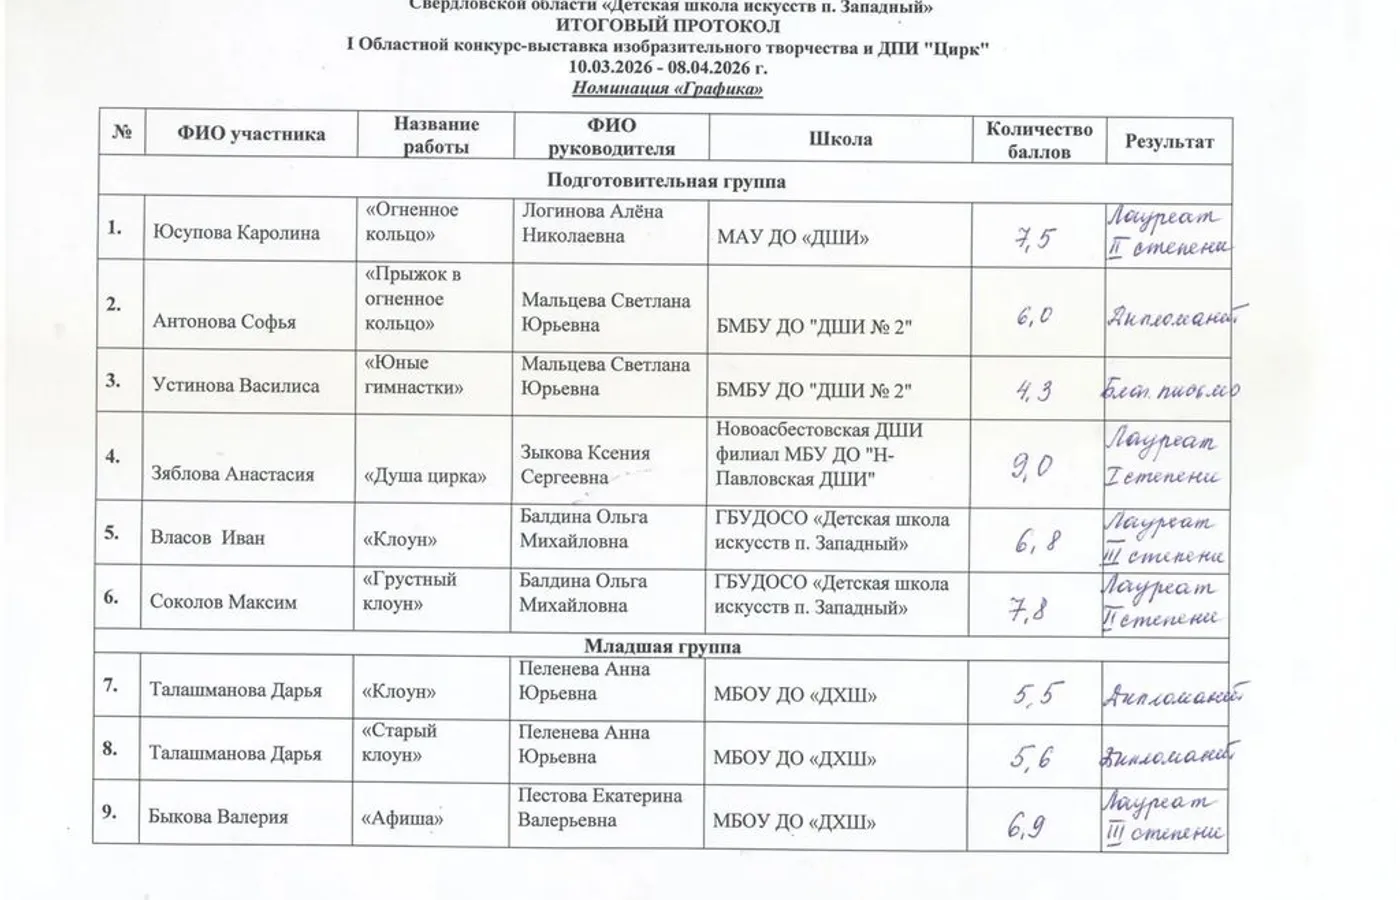 Свердловской области «Детская школа искусств п. Западный»
ИТОГОВЫЙ ПРОТОКОЛ
I Областной конкурс-выставка изобразительного творчества и ДПИ "Цирк"
10.03.2026 - 08.04.2026 г.
Номинация «Графика»
№ ФИО участника Название работы ФИО руководителя Школа Количество баллов Результат
Подготовительная группа
1. Юсупова Каролина «Огненное кольцо» Логинова Алёна Николаевна МАУ ДО «ДШИ» 7,5 Лауреат II степени
2. Антонова Софья «Прыжок в огненное кольцо» Мальцева Светлана Юрьевна БМБУ ДО "ДШИ № 2" 6,0 Дипломант
3. Устинова Василиса «Юные гимнастки» Мальцева Светлана Юрьевна БМБУ ДО "ДШИ № 2" 4,3 Благ. письмо
4. Зяблова Анастасия «Душа цирка» Зыкова Ксения Сергеевна Новоасбестовская ДШИ филиал МБУ ДО "Н-Павловская ДШИ" 9,0 Лауреат I степени
5. Власов Иван «Клоун» Балдина Ольга Михайловна ГБУДОСО «Детская школа искусств п. Западный» 6,8 Лауреат III степени
6. Соколов Максим «Грустный клоун» Балдина Ольга Михайловна ГБУДОСО «Детская школа искусств п. Западный» 7,8 Лауреат II степени
Младшая группа
7. Талашманова Дарья «Клоун» Пеленева Анна Юрьевна МБОУ ДО «ДХШ» 5,5 Дипломант
8. Талашманова Дарья «Старый клоун» Пеленева Анна Юрьевна МБОУ ДО «ДХШ» 5,6 Дипломант
9. Быкова Валерия «Афиша» Пестова Екатерина Валерьевна МБОУ ДО «ДХШ» 6,9 Лауреат III степени